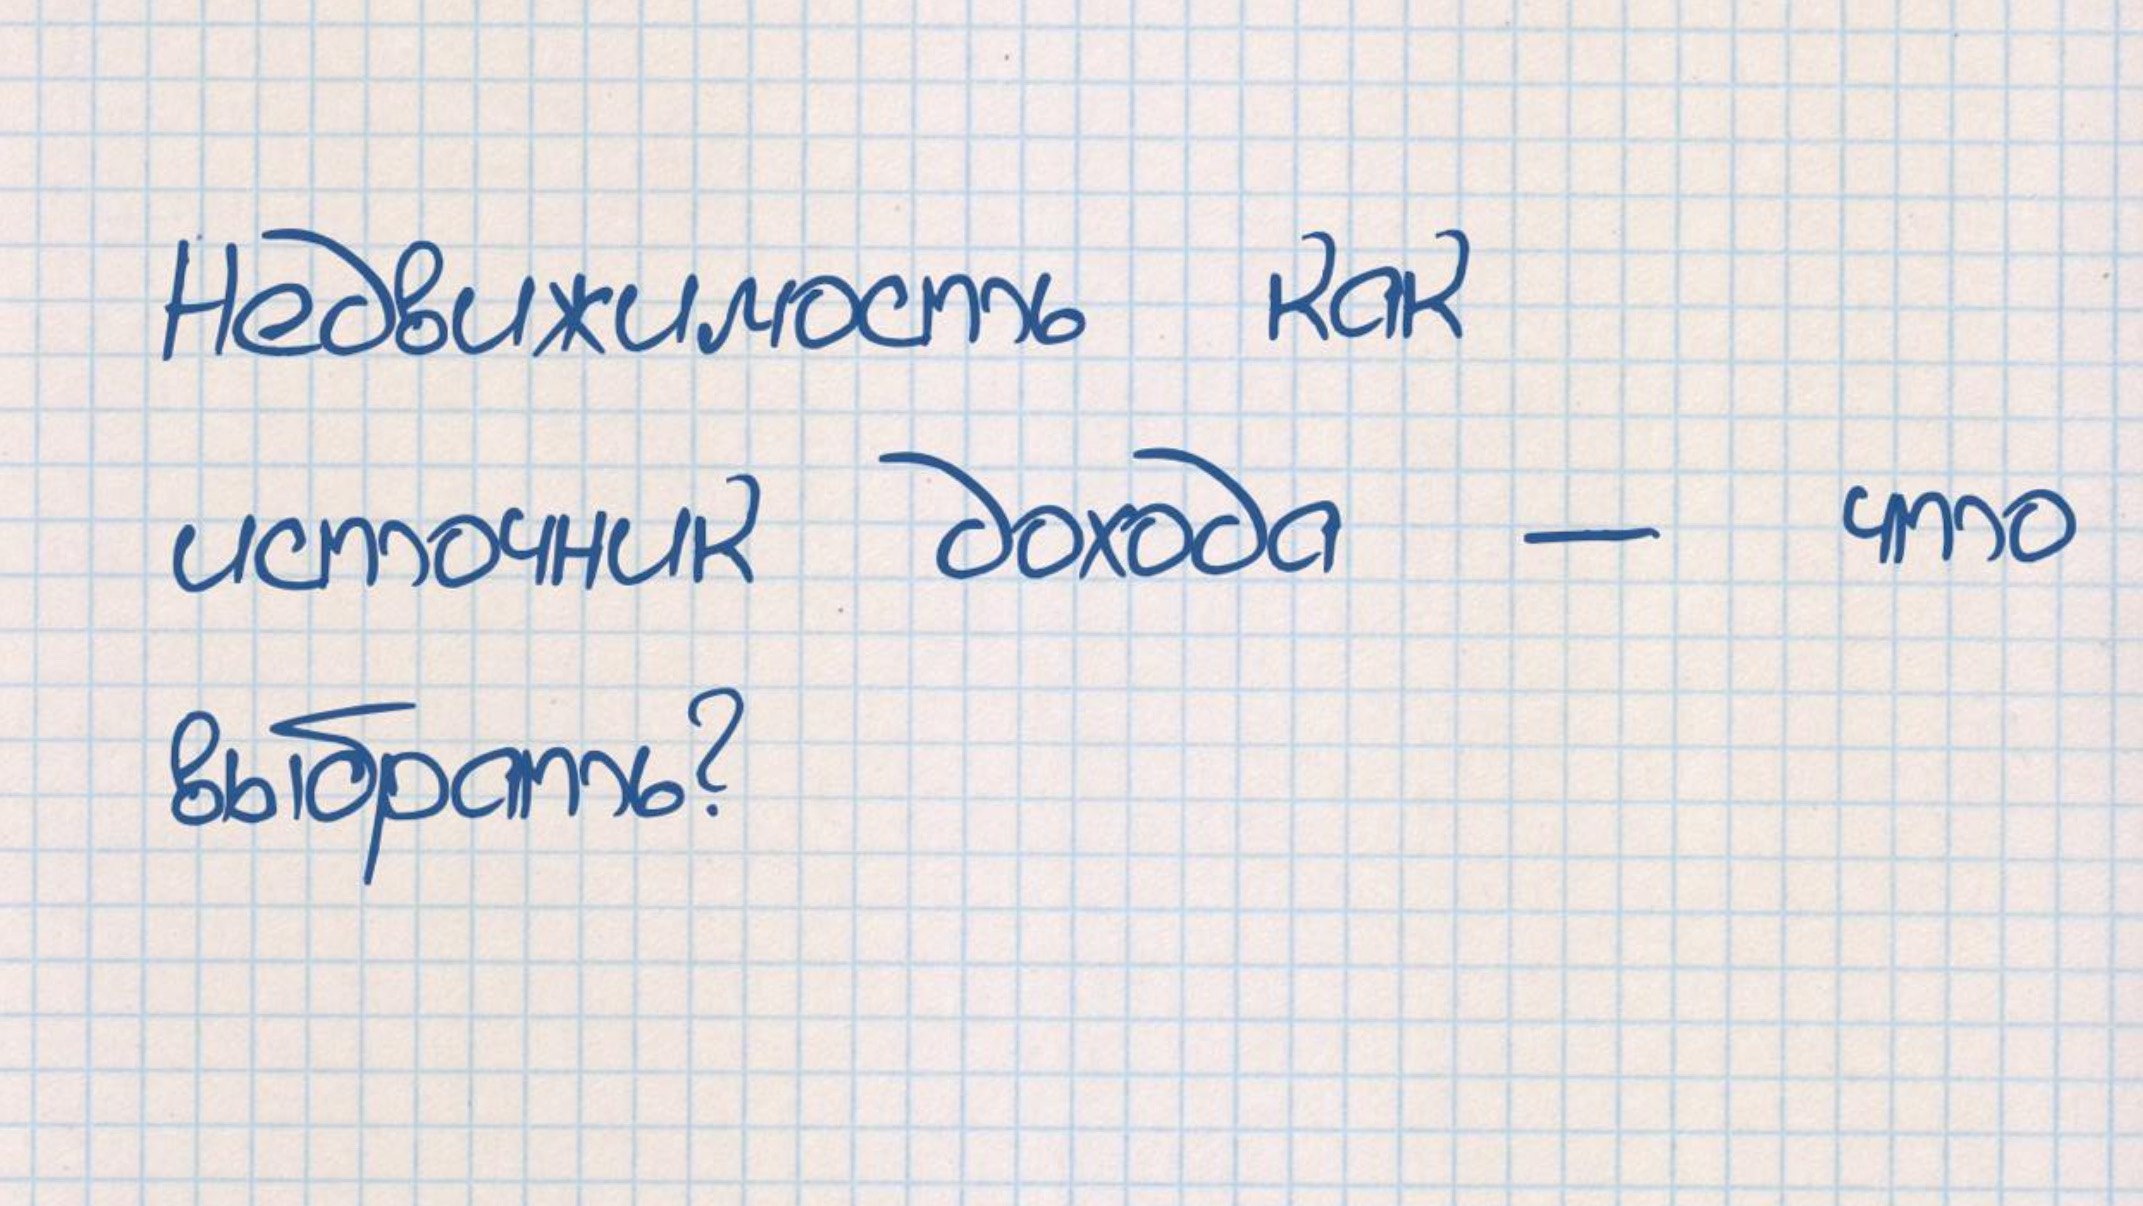 Недвижимость как
источник дохода — что
выбрать?